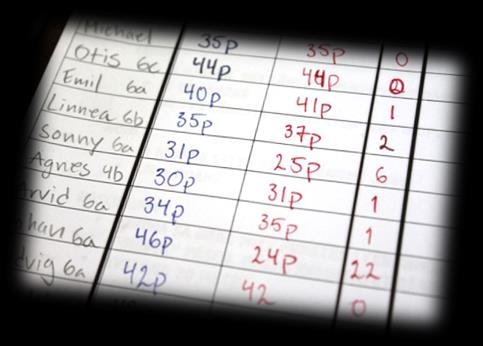 Michael 35p 35p 0
Otis 6c 44p 44p 0
Emil 6a 40p 41p 1
Linnea 6b 35p 37p 2
Sonny 6a 31p 25p 6
Agnes 4b 30p 31p 1
Arvid 6a 34p 35p 1
han 6a 46p 24p 22
dvig 6a 42p 42 0